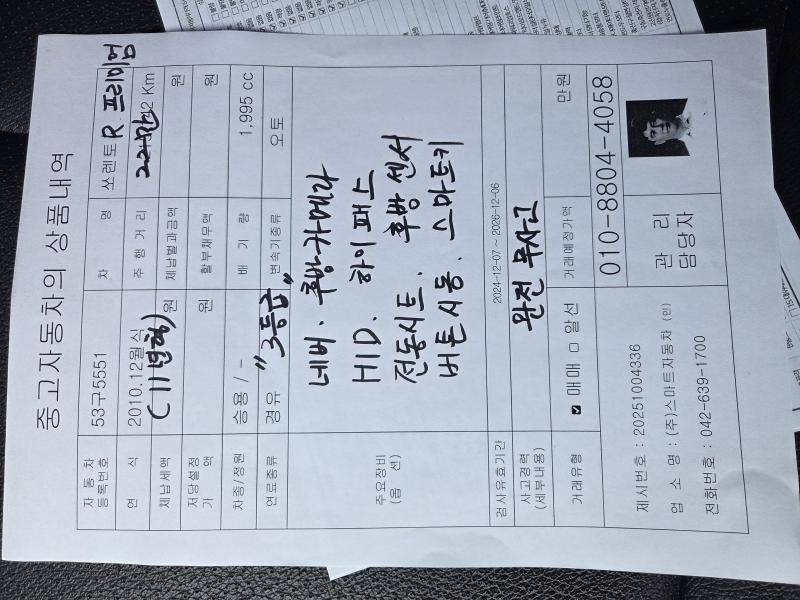 중고자동차의 상품내역
자동차등록번호 53구5551 차 명 쏘렌토R 프리미엄
연 식 2010.12월식 (11년형) 주 행 거 리 22만 Km
체납세액 원 체납벌과금액 원
저당설정 가 액 원 할부채무액 원
차종/정원 승용 / - 배 기 량 1,995 cc
연료종류 경유 "3등급" 변속기종류 오토
주요장비 (옵 션)
네비. 후방카메라
HID. 하이패스
전동시트. 후방센서
버튼시동. 스마트키
검사유효기간 2024-12-07 ~ 2026-12-06
사고경력 (세부내용) 완전 무사고
거래유형 ☑ 매매 □ 알선 거래예정가액 만원
제시번호 : 20251004336
업 소 명 : (주)스마트자동차 (인)
전화번호 : 042-639-1700
관 리 담당자
010-8804-4058